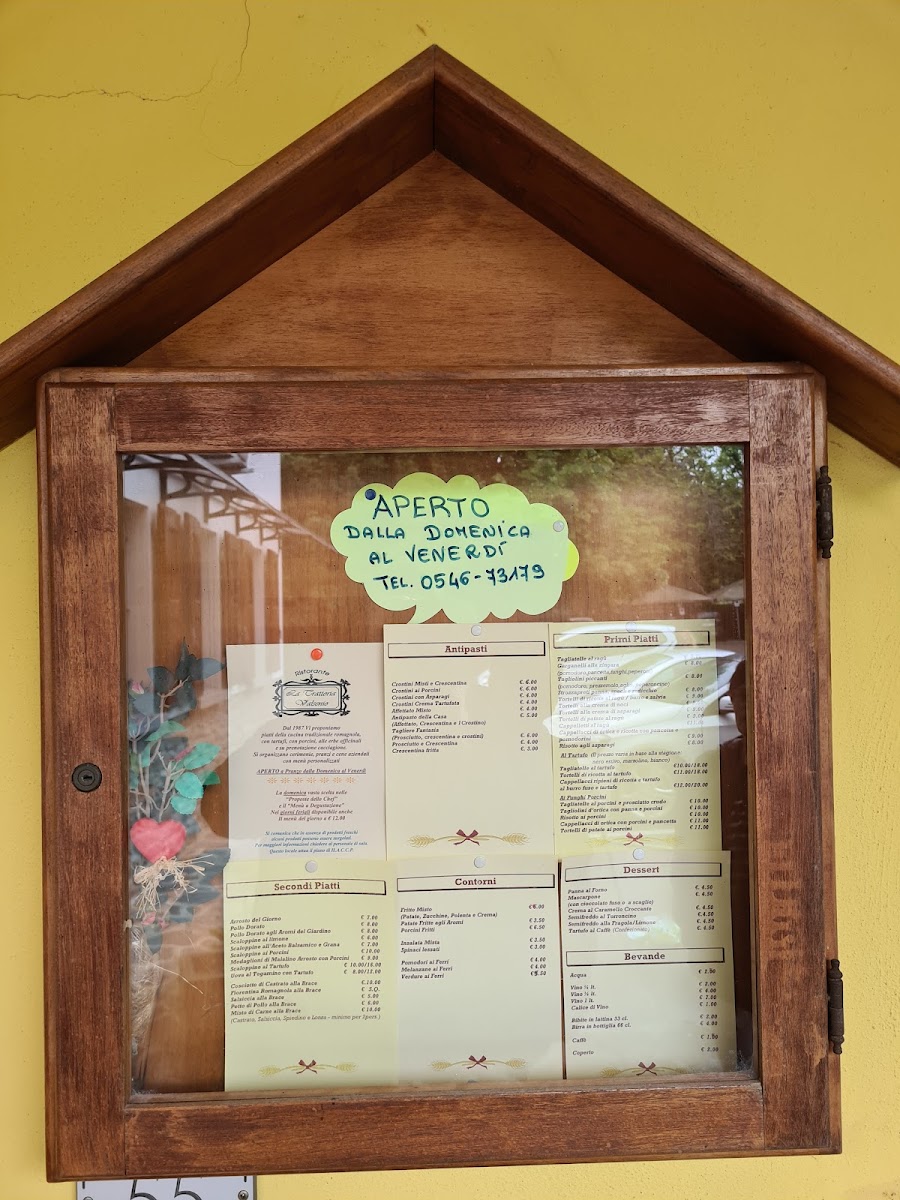 APERTO
DALLA DOMENICA
AL VENERDÍ
TEL. 0546-73179
Ristorante
La Trattoria
Valsenio
Dal 1987 Vi proponiamo
piatti della cucina tradizionale romagnola,
con tartufi, con porcini, alle erbe officinali
e su prenotazione cacciagione.
Si organizzano cerimonie, pranzi e cene aziendali
con menù personalizzati
APERTO a Pranzo dalla Domenica al Venerdì
La domenica vasta scelta nelle
"Proposte dello Chef"
e il "Menù a Degustazione"
Nei giorni feriali disponibile anche
Il menù del giorno a € 12,00
Si comunica che in assenza di prodotti freschi
alcuni prodotti possono essere surgelati.
Per maggiori informazioni chiedere al personale di sala
Questo locale attua il piano di H.A.C.C.P.
Antipasti
Crostini Misti e Crescentina € 6.00
Crostini ai Porcini € 4.00
Crostini con Asparagi € 4.00
Crostini Crema Tartufata € 4.00
Affettato Misto € 4.00
Antipasto della Casa € 5.00
(Affettato, Crescentina e 1Crostino)
Tagliere Fantasia € 6.00
(Prosciutto, crescentina e crostini) € 4.00
Prosciutto e Crescentina € 4.00
Crescentina fritta € 3.00
Primi Piatti
Tagliatelle al ragù
Garganelli alla zingara
(pomodoro,pancetta,funghi,peperoni)
Tagliolini piccanti
Tortelli di patate al ragù
Risotto agli asparagi € 8.00
Al Tartufo (Il prezzo varia in base alla stagione
nero estivo, marzolino, bianco)
Tagliatelle al tartufo €10.00/18.00
Tortelli di ricotta al tartufo €11.00/18.00
Cappellacci ripieni di ricotta e tartufo
al burro fuso e tartufo €12.00/20.00
Ai Funghi Porcini
Tagliatelle ai porcini e prosciutto crudo € 10.00
Tagliolini d'ortica con panna e porcini € 10.00
Risotto ai porcini € 10.00
Cappellacci di ortica con porcini e pancetta € 11.00
Tortelli di patate ai porcini € 11.00
Secondi Piatti
Arrosto del Giorno € 7.00
Pollo Dorato € 8.00
Pollo Dorato agli Aromi del Giardino € 8.00
Scaloppine al limone € 6.00
Scaloppine all'Aceto Balsamico e Grana € 7.00
Scaloppine ai Porcini € 10.00
Medaglioni di Maialino Arrosto con Porcini € 9.00
Scaloppine al Tartufo € 10.00/16.00
Uova al Tegamino con Tartufo € 8.00/12.00
Cosciotto di Castrato alla Brace €.10.00
Fiorentina Romagnola alla Brace € S.Q.
Salsiccia alla Brace € 5.00
Petto di Pollo alla Brace € 6.00
Misto di Carne alla Brace € 10.00
(Castrato, Salsiccia, Spiedini e Lonza - minimo per 2pers.)
Contorni
Fritto Misto €6.00
(Patate, Zucchine, Polenta e Crema)
Patate Fritte agli Aromi € 3.50
Porcini Fritti € 6.50
Insalata Mista € 3.50
Spinaci lessati € 3.00
Pomodori ai Ferri € 4.00
Melanzane ai Ferri € 4.00
Verdure ai Ferri €5.50
Dessert
Panna al Forno €. 4.50
Mascarpone
(con cioccolato fuso o a scaglie) €. 4.50
Crema al Caramello Croccante €. 4.50
Semifreddo al Torroncino €.4.50
Semifreddo alla Fragola/Limone €. 4.50
Tartufo al Caffè (Confezionato) €. 4.50
Bevande
Acqua
Vino ¼ lt. € 2.00
Vino ½ lt. € 4.00
Vino 1 lt. € 7.00
Calice di Vino
Bibite in lattina 33 cl. € 3.00
Birra in bottiglia 66 cl. € 4.00
Caffè
Coperto € 2.00
55